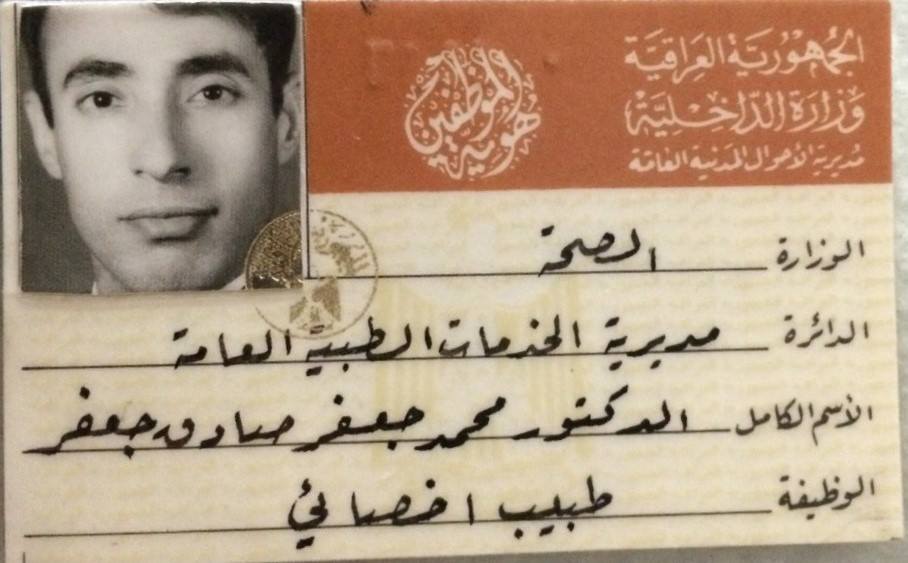 الجمهورية العراقية
وزارة الداخلية
مديرية الأحوال المدنية العامة
هوية الموظفين
الوزارة الصحة
الدائرة مديرية الخدمات الطبية العامة
الأسم الكامل الدكتور محمد جعفر صادق جعفر
الوظيفة طبيب اخصائي